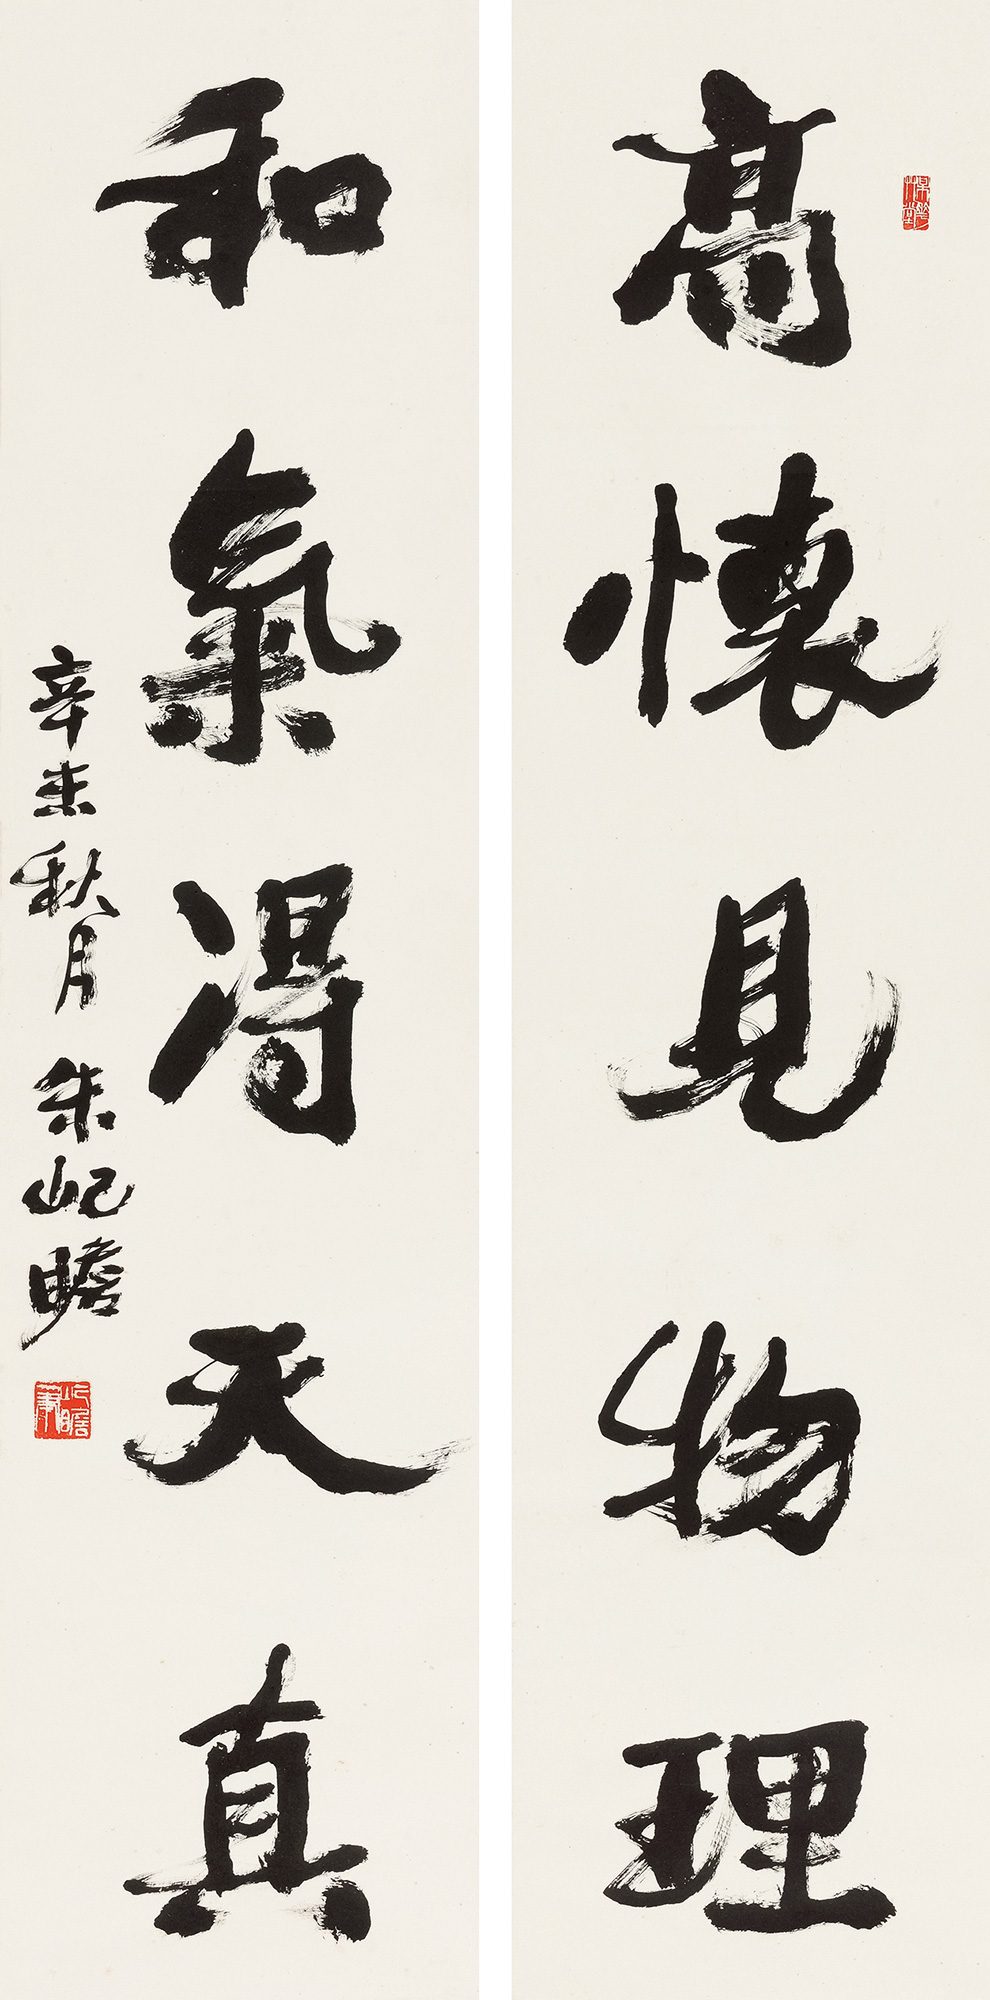 高懷見物理
和氣得天真
辛未秋月 朱屺瞻